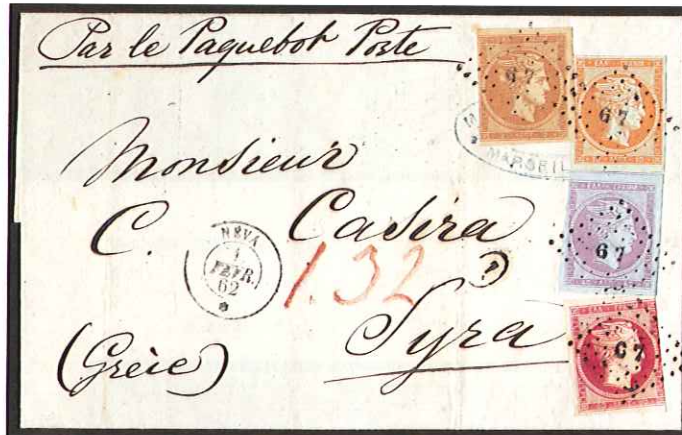 Par le Paquebot Poste
67
67
MARSEIL
Monsieur
C. Casira
67
NÉVA
1
FEVR.
62
1.32
Syra
(Grèce)
67